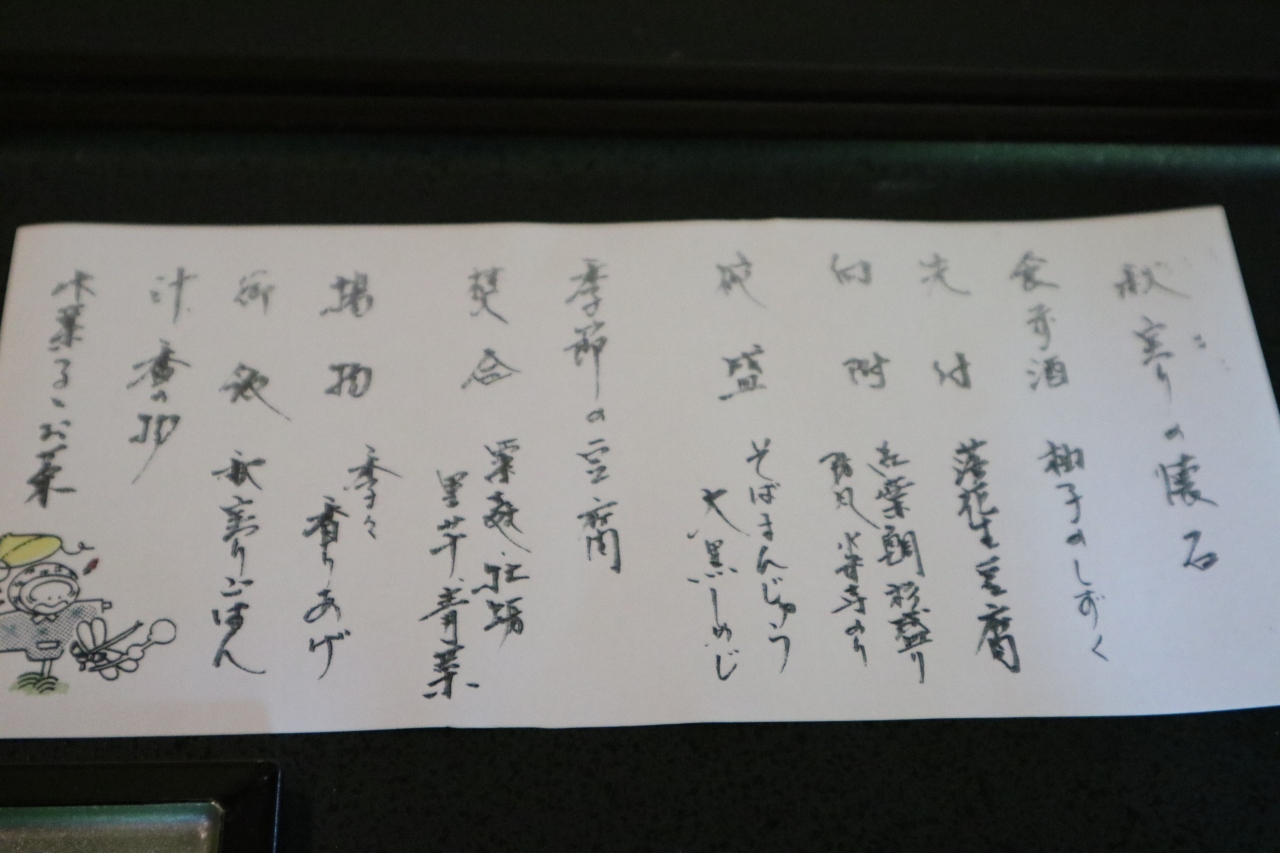 秋実りの懐石
食前酒 柚子のしずく
先付 落花生豆腐
向附 紅葉鯛 菘盛り
防風 水前寺のり
椀盛 そばまんじゅう
大黒しめじ
季節の豆腐
焚合 粟麩 牡蠣
里芋 青菜
揚物 季々
香りあげ
御飯 秋実りごはん
汁 香の物
水菓子とお菓